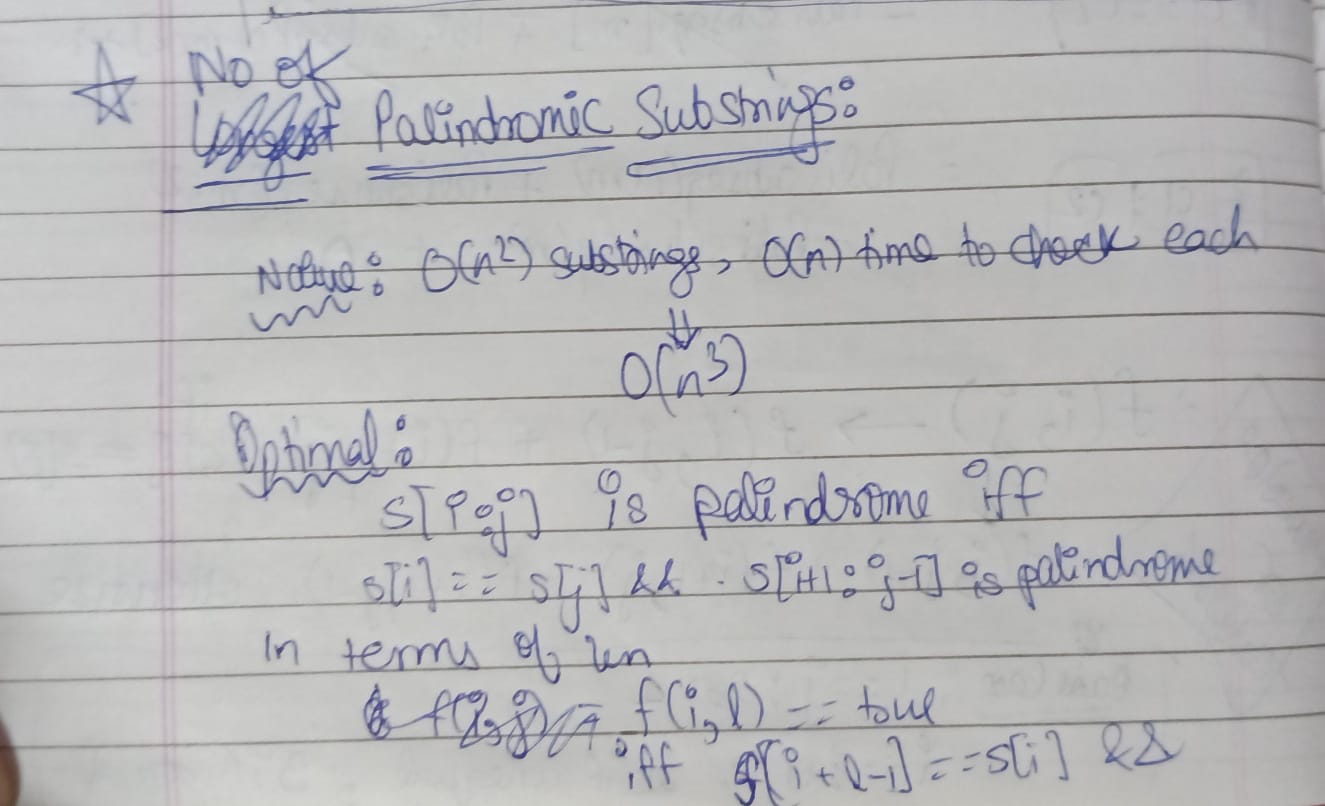 No of
Longest Palindromic Substrings:
Naive: O(n²) substrings, O(n) time to check each
⇓
O(n³)
Optimal:
s[i:j] is palindrome iff
s[i] == s[j] && s[i+1:j-1] is palindrome
In terms of len
f(i,l) == true
iff s[i+l-1] == s[i] &&